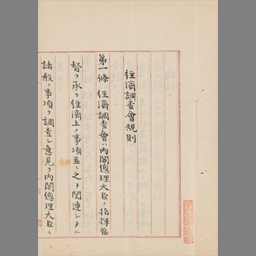 經濟調査會規則
第一條 經濟調査會ハ內閣總理大臣ノ指揮監
督ヲ承ケ經濟上ノ事項並ニ之ニ關連シタル
諸般ノ事項ヲ調査シ意見ヲ內閣總理大臣ニ